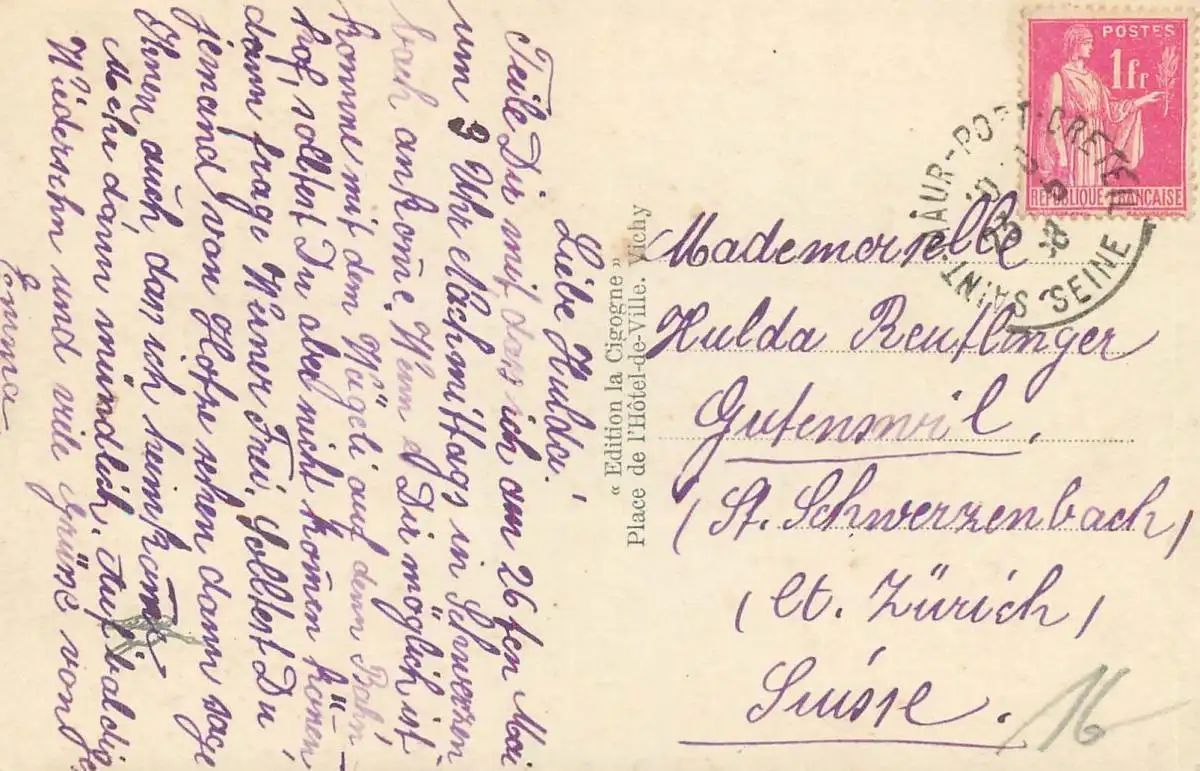 Liebe Hulda!
Teile Dir mit, dass ich am 26ten Mai
um 3 Uhr Nachmittags in Schwerzen
bach ankom̄e. Wenn es Dir möglich ist
komme mit dem Wägeli auf denn Bahn-
hof, solltest Du aber nicht kom̄en kön̄en
dann frage Werner Frei. Solltest Du
jemand von Hofse sehen dann sage
Ihnen auch das ich heimkom̄e
Mehr dann mündlich. Auf baldig
Wiedersehn und vile Grüsse von
Emma
« Edition la Cigogne »
Place de l'Hôtel-de-Ville. Vichy
POSTES
1fr
RÉPUBLIQUE FRANÇAISE
SAINT-MAUR-PORT-CRETEIL
SEINE
Mademoiselle
Hulda Reutlinger
Gutenswil.
(St. Schwerzenbach)
(Ct. Zürich)
Suisse.
16